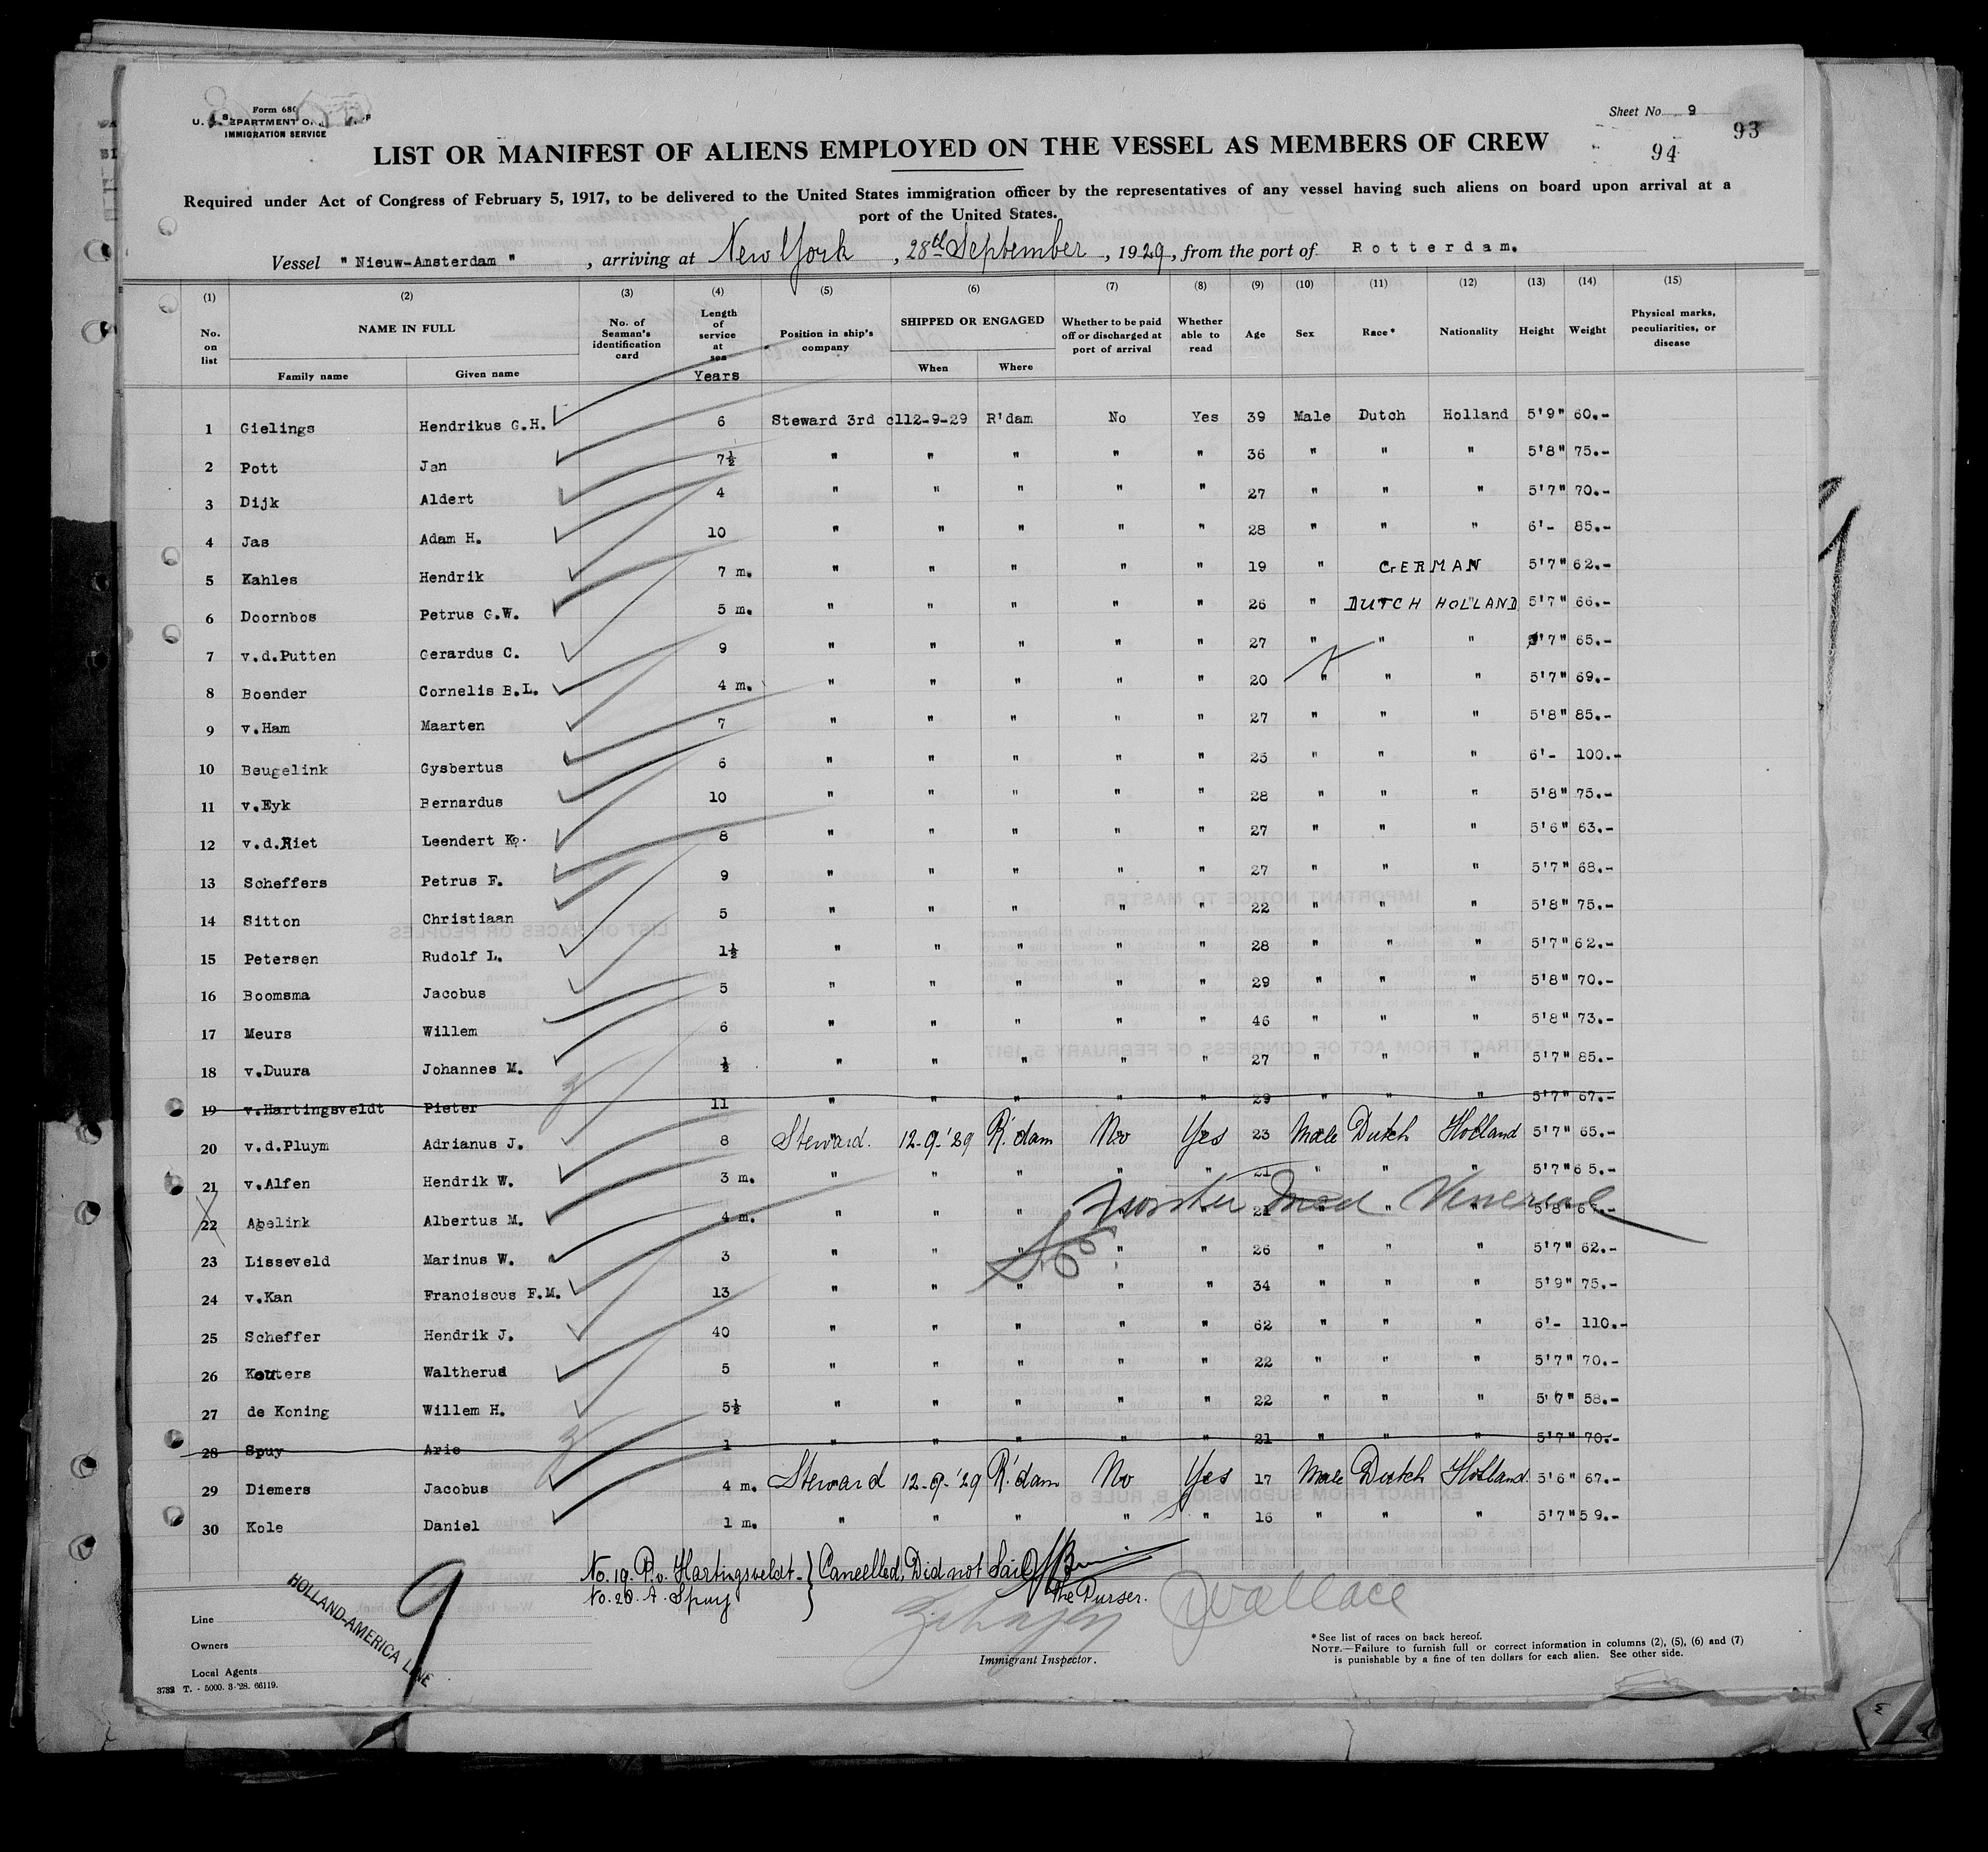 Form 680
U. S. DEPARTMENT OF
IMMIGRATION SERVICE
Sheet No. 9
93
94
LIST OR MANIFEST OF ALIENS EMPLOYED ON THE VESSEL AS MEMBERS OF CREW
Required under Act of Congress of February 5, 1917, to be delivered to the United States immigration officer by the representatives of any vessel having such aliens on board upon arrival at a
port of the United States.
Vessel " Nieuw-Amsterdam " , arriving at New York , 28th September , 1929 , from the port of Rotterdam.
(1) (2) (3) (4) (5) (6) (7) (8) (9) (10) (11) (12) (13) (14) (15)
No. on list NAME IN FULL Family name Given name No. of Seaman's identification card Length of service at sea Years Position in ship's company SHIPPED OR ENGAGED When Where Whether to be paid off or discharged at port of arrival Whether able to read Age Sex Race* Nationality Height Weight Physical marks, peculiarities, or disease
1 Gielings Hendrikus G.H. 6 Steward 3rd cl 12-9-29 R'dam No Yes 39 Male Dutch Holland 5'9" 60.-
2 Pott Jan 7½ " " " " " 36 " " " 5'8" 75.-
3 Dijk Aldert 4 " " " " " 27 " " " 5'7" 70.-
4 Jas Adam H. 10 " " " " " 28 " " " 6'- 85.-
5 Kahles Hendrik 7 m. " " " " " 19 " GERMAN 5'7" 62.-
6 Doornbos Petrus G.W. 5 m. " " " " " 26 " DUTCH HOLLAND 5'7" 66.-
7 v.d.Putten Gerardus C. 9 " " " " " 27 " " " 5'7" 65.-
8 Boender Cornelis B.L. 4 m. " " " " " 20 " " " 5'7" 69.-
9 v.Ham Maarten 7 " " " " " 27 " " " 5'8" 85.-
10 Beugelink Gysbertus 6 " " " " " 25 " " " 6'- 100.-
11 v.Eyk Bernardus 10 " " " " " 28 " " " 5'8" 75.-
12 v.d.Riet Leendert K. 8 " " " " " 27 " " " 5'6" 63.-
13 Scheffers Petrus F. 9 " " " " " 27 " " " 5'7" 68.-
14 Sitton Christiaan 5 " " " " " 22 " " " 5'8" 75.-
15 Petersen Rudolf L. 1½ " " " " " 28 " " " 5'7" 62.-
16 Boomsma Jacobus 5 " " " " " 29 " " " 5'8" 70.-
17 Meurs Willem 6 " " " " " 46 " " " 5'8" 73.-
18 v.Duura Johannes M. ½ " " " " " 27 " " " 5'7" 85.-
19 v.Hartingsveldt Pieter 11 " " " " " 29 " " " 5'7" 67.-
20 v.d.Pluym Adrianus J. 8 Steward. 12-9-'29 R'dam No Yes 23 Male Dutch Holland 5'7" 65.-
21 v.Alfen Hendrik W. 3 m. " " " " " 21 " " " 5'7" 65.-
22 Abelink Albertus M. 4 m. " " " Med. Venereal 21 " " 5'8" 67.-
23 Lisseveld Marinus W. 3 " " " " " 26 " " " 5'7" 62.-
24 v.Kan Franciscus F.M. 13 " " " " " 34 " " " 5'9" 75.-
25 Scheffer Hendrik J. 40 " " " " " 62 " " " 6'- 110.-
26 Kouters Waltherus 5 " " " " " 22 " " " 5'7" 70.-
27 de Koning Willem H. 5½ " " " " " 22 " " " 5'6" 58.-
28 Spuy Arie 1 " " " " " 21 " " " 5'7" 70.-
29 Diemers Jacobus 4 m. Steward 12-9-'29 R'dam No Yes 17 Male Dutch Holland. 5'6" 67.-
30 Kole Daniel 1 m. " " " " " 16 " " " 5'7" 59.-
No. 19. P. v. Hartingsveldt- } Cancelled, Did not Sail
No. 28. A. Spuy
The Purser.
9
HOLLAND-AMERICA LINE
Wallace
Line
Owners
Local Agents
Immigrant Inspector.
* See list of races on back hereof.
NOTE.—Failure to furnish full or correct information in columns (2), (5), (6) and (7)
is punishable by a fine of ten dollars for each alien. See other side.
3732 T. - 5000. 3-'28. 66119.